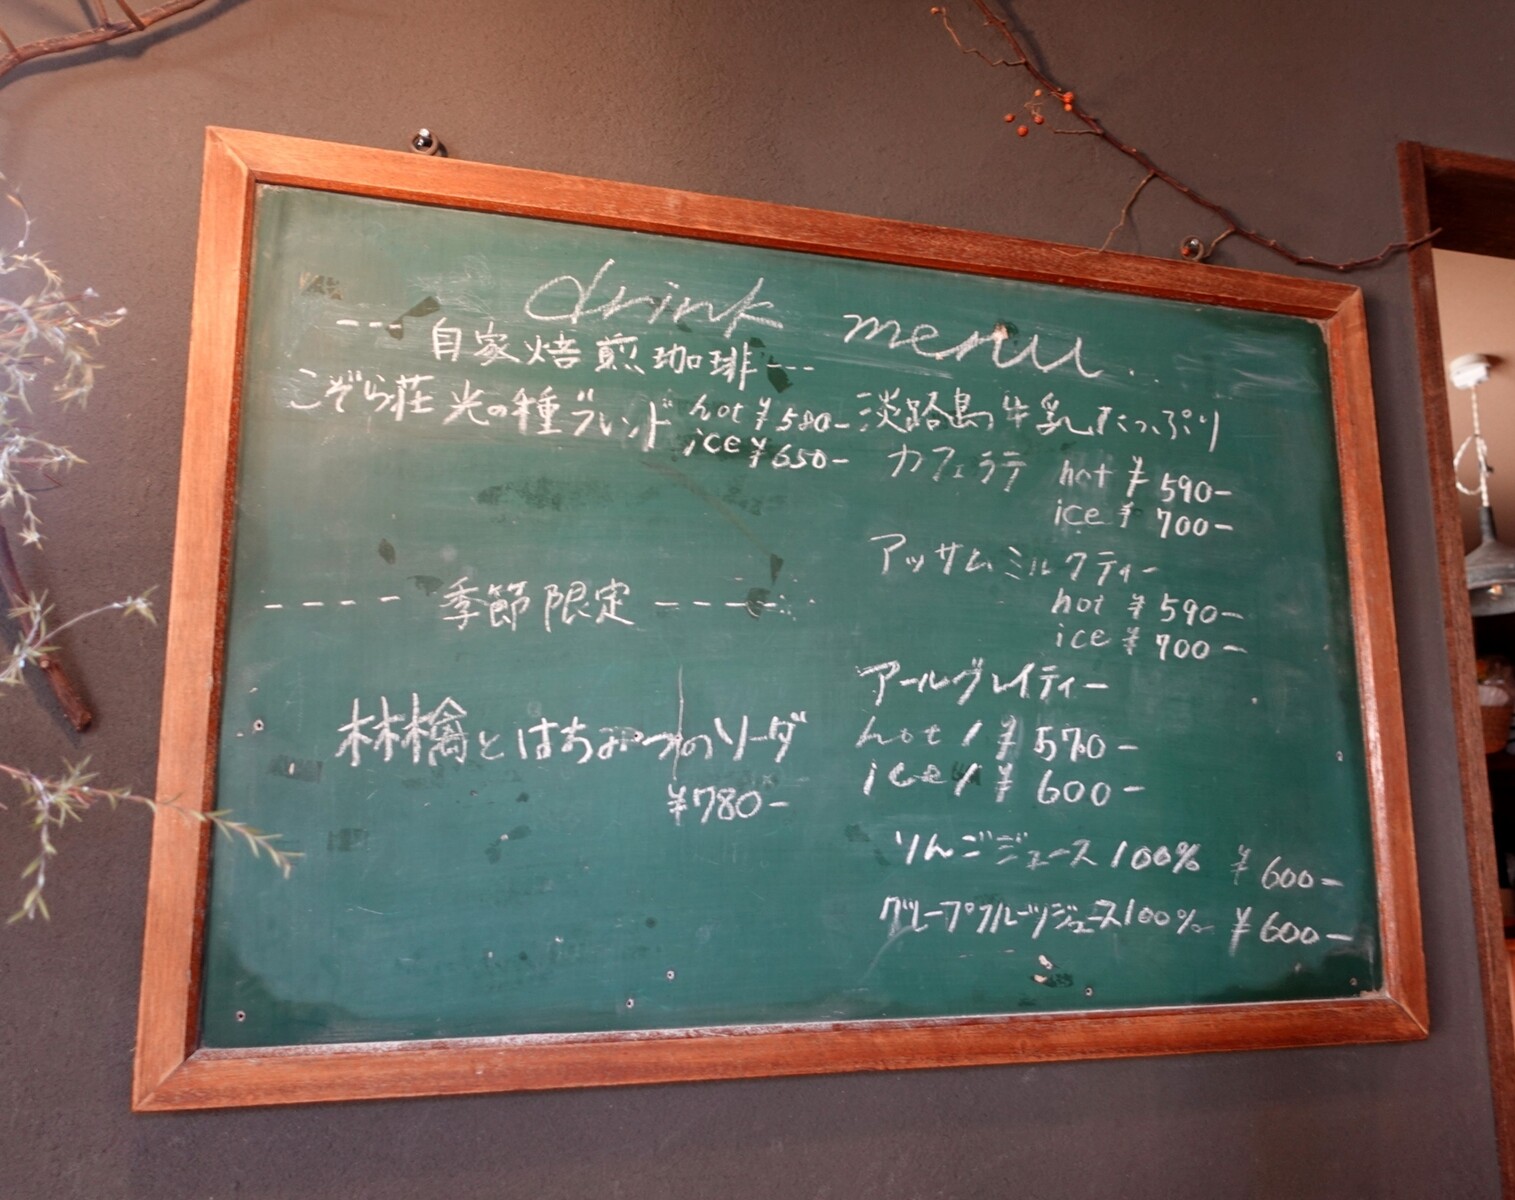 drink menu
--- 自家焙煎珈琲 ---
こぞら荘 光の種ブレンド hot ¥580-
ice ¥650-
---- 季節限定 ----
林檎とはちみつのソーダ
¥780-
淡路島の牛乳たっぷり
カフェラテ hot ¥590-
ice ¥700-
アッサムミルクティー
hot ¥590-
ice ¥700-
アールグレイティー
hot / ¥570-
ice / ¥600-
りんごジュース100% ¥600-
グレープフルーツジュース100% ¥600-